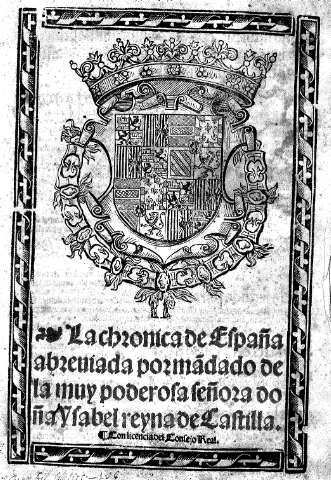 La chronica de España
abreuiada por mãdado de
la muy poderosa señora do
ña Ysabel reyna de Castilla.
¶ Con licencia del Consejo Real.